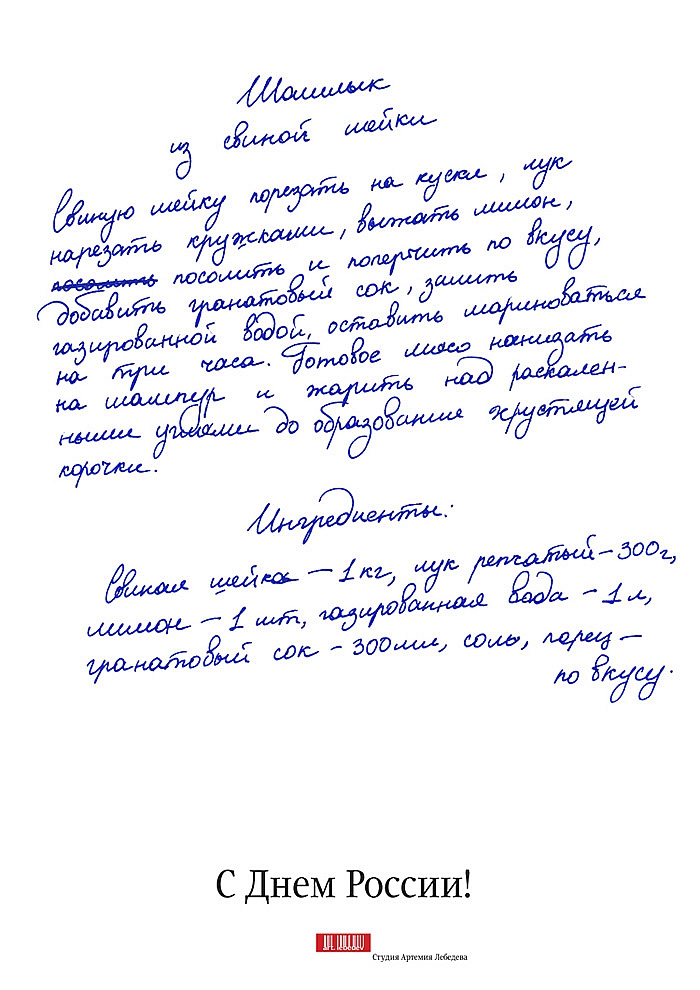 Шашлык
из свиной шейки
Свиную шейку порезать на куски, лук
нарезать кружками, выжать лимон,
посолить посолить и поперчить по вкусу,
добавить гранатовый сок, залить
газированной водой, оставить мариноваться
на три часа. Готовое мясо нанизать
на шампур и жарить над раскален-
ными углями до образования хрустящей
корочки.
Ингредиенты:
Свиная шейка – 1 кг, лук репчатый – 300 г,
лимон – 1 шт, газированная вода – 1 л,
гранатовый сок – 300 мл, соль, перец –
по вкусу.
С Днем России!
art. lebedev
Студия Артемия Лебедева